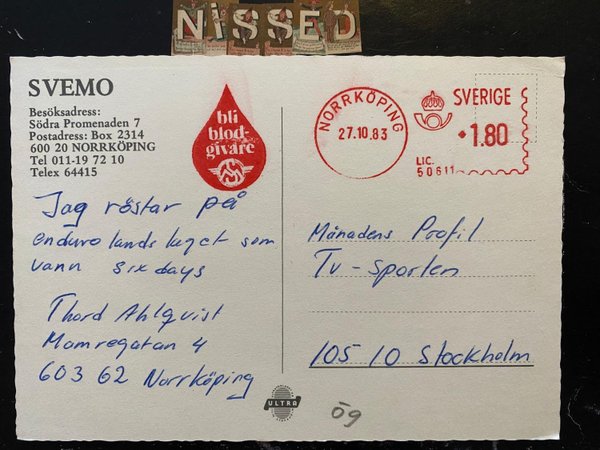 NiSSED
SVEMO
Besöksadress:
Södra Promenaden 7
Postadress: Box 2314
600 20 NORRKÖPING
Tel 011-19 72 10
Telex 64415
bli
blod-
givare
NORRKÖPING
27.10.83
SVERIGE
1.80
LIC.
50611
Jag röstar på
enduro landslaget som
vann six days
Thord Ahlqvist
Mamregatan 4
603 62 Norrköping
Månadens Profil
Tv-sporten
105 10 Stockholm
ULTRA
ög